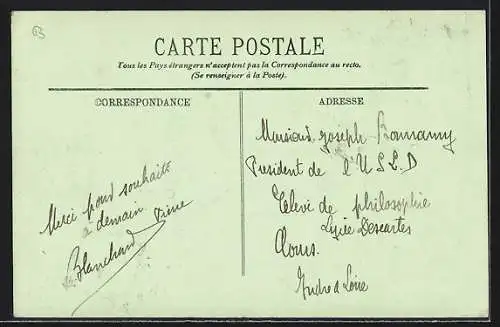 63
CARTE POSTALE
Tous les Pays étrangers n'acceptent pas la Correspondance au recto.
(Se renseigner à la Poste).
CORRESPONDANCE
ADRESSE
Merci pour souhaits
à demain
Blanchard
Monsieur Joseph Bonnamy
President de l'U S L D
Elève de philosophie
Lycée Descartes
Tours.
Indre & Loire